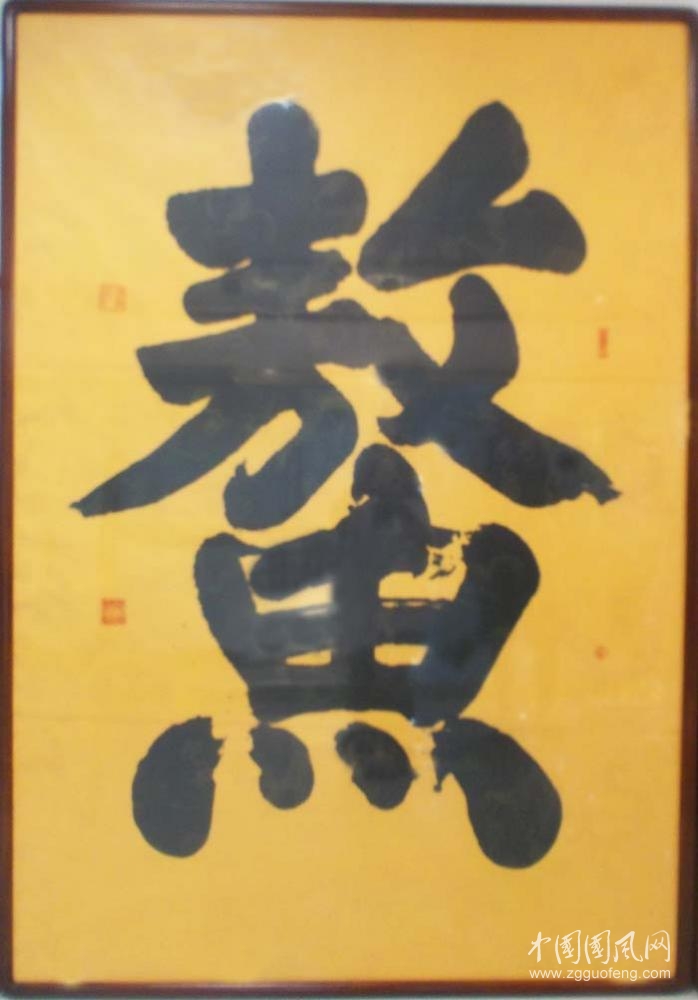 鰲
中国国风网
www.zgguofeng.com